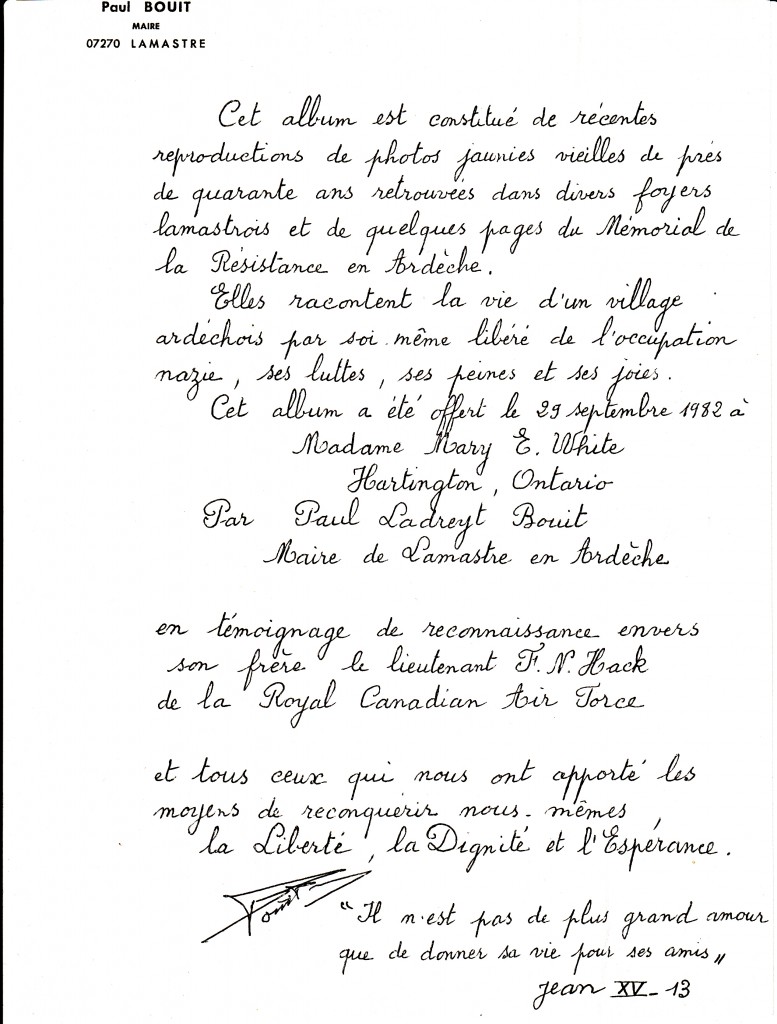 Paul BOUIT
MAIRE
07270 LAMASTRE
Cet album est constitué de récentes
reproductions de photos jaunies vieilles de prés
de quarante ans retrouvées dans divers foyers
lamastrois et de quelques pages du Mémorial de
la Résistance en Ardèche.
Elles racontent la vie d'un village
ardéchois par soi même libéré de l'occupation
nazie, ses luttes, ses peines et ses joies.
Cet album a été offert le 29 septembre 1982 à
Madame Mary E. White
Hartington, Ontario
Par Paul Ladreyt Bouit
Maire de Lamastre en Ardèche
en témoignage de reconnaissance envers
son frère le lieutenant F. N. Hack
de la Royal Canadian Air Force
et tous ceux qui nous ont apporté les
moyens de reconquérir nous-mêmes,
la Liberté, la Dignité et l'Espérance.
Bouit
"Il n'est pas de plus grand amour
que de donner sa vie pour ses amis"
Jean XV-13